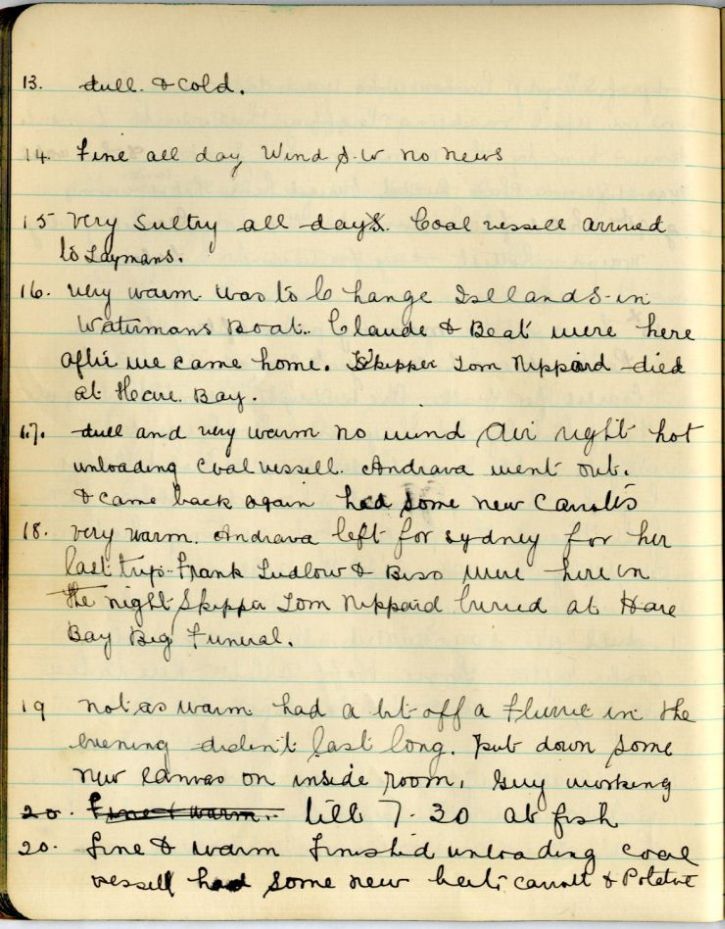 13. dull. & cold.
14. Fine all day Wind S.W no news
15 Very sultry all day. Coal vessell arrived
to Laymans.
16. Very warm. was to Change Isllands in
Watermans Boat. Claude & Beat were here
after we came home. Skipper Tom Nippard died
at Hare Bay.
17. dull and very warm no wind Air right hot
unloading coal vessell. Andrava went out.
& came back again had some new Carrots
18. Very warm. Andrava left for sydney for her
last trip. Frank Ludlow & were here in
the night Skipper Tom Nippard buried at Hare
Bay Big Funeral.
19 not as warm had a bit off a flurrie in the
evening diden't last long. Put down some
new canvas on inside room. Guy working
20. Fine & warm. till 7.30 at fish
20. Fine & warm Finished unloading coal
vessell had some new beets carrott & Potatoe